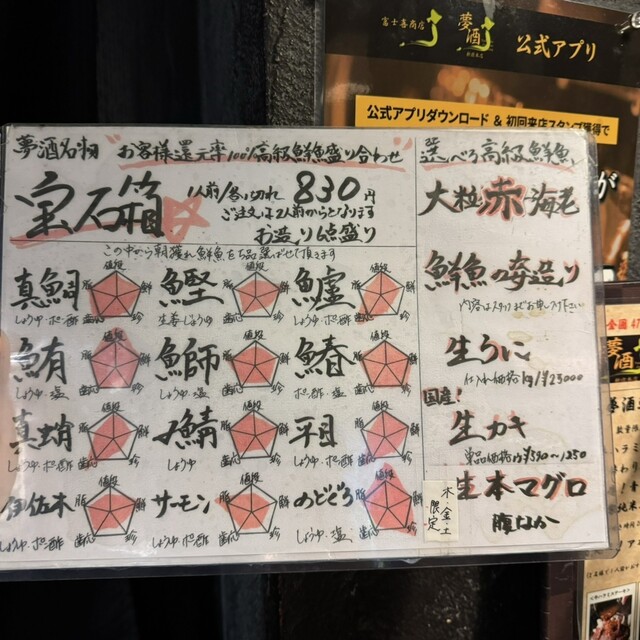 富士喜商店
夢酒
公式アプリ
公式アプリダウンロード & 初回来店スタンプ獲得で
が
夢酒名物 お客様還元率100%高級鮮魚盛り合わせ
宝石箱
1人前/各1切れ 830円
ご注文は2人前からとなります
お造り6点盛り
この中から朝獲れ鮮魚を6品選ばせて頂きます
真鯛
しょうゆ・ポン酢
鰹
生姜しょうゆ
鱸
しょうゆ・ポン酢
鮪
しょうゆ・塩
鰤
しょうゆ・ポン酢
鰆
ポン酢・塩
真蛸
しょうゆ・ポン酢
〆鯖
しょうゆ
平目
しょうゆ・ポン酢
伊佐木
しょうゆ・ポン酢
サーモン
しょうゆ・ポン酢
のどぐろ
しょうゆ・塩
値段
選べる高級鮮魚
大粒赤海老
鮮魚の姿造り
内容はスタッフまでお申し下さい
生うに
仕入れ価格 1台/¥23000
国産!
生ガキ
単品価格は¥590〜1250
木/金/土
限定
生本マグロ
腹なか
全国47
夢酒